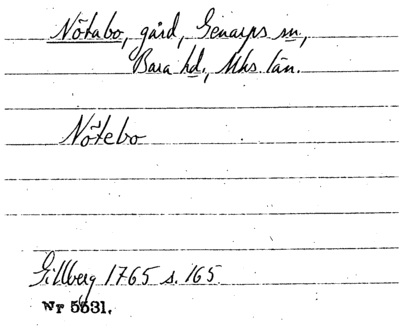 Nötabo, gård, Genarps sn,
Bara hd., Mhs. län.
Nötebo
Gillberg 1765 s. 165.
Nr 5531.